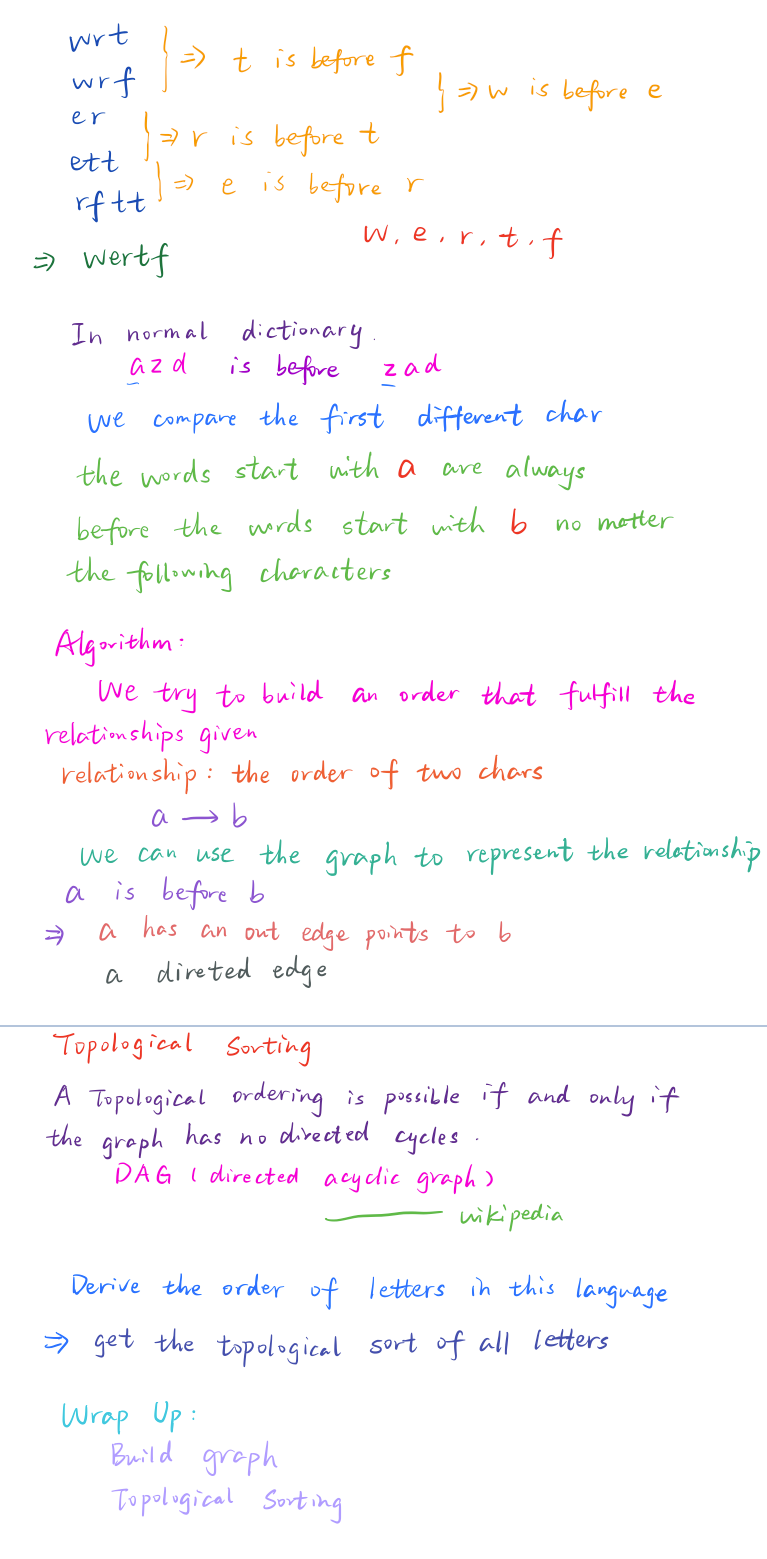 wrt
wrf
⇒ t is before f
er
⇒ w is before e
ett
⇒ r is before t
rftt
⇒ e is before r
w, e, r, t, f
⇒ wertf
In normal dictionary.
azd is before zad
we compare the first different char
the words start with a are always
before the words start with b no matter
the following characters
Algorithm:
We try to build an order that fulfill the
relationships given
relationship: the order of two chars
a → b
We can use the graph to represent the relationship
a is before b
⇒ a has an out edge points to b
a direted edge
Topological Sorting
A Topological ordering is possible if and only if
the graph has no directed cycles.
DAG (directed acyclic graph)
—— wikipedia
Derive the order of letters in this language
⇒ get the topological sort of all letters
Wrap Up:
Build graph
Topological Sorting